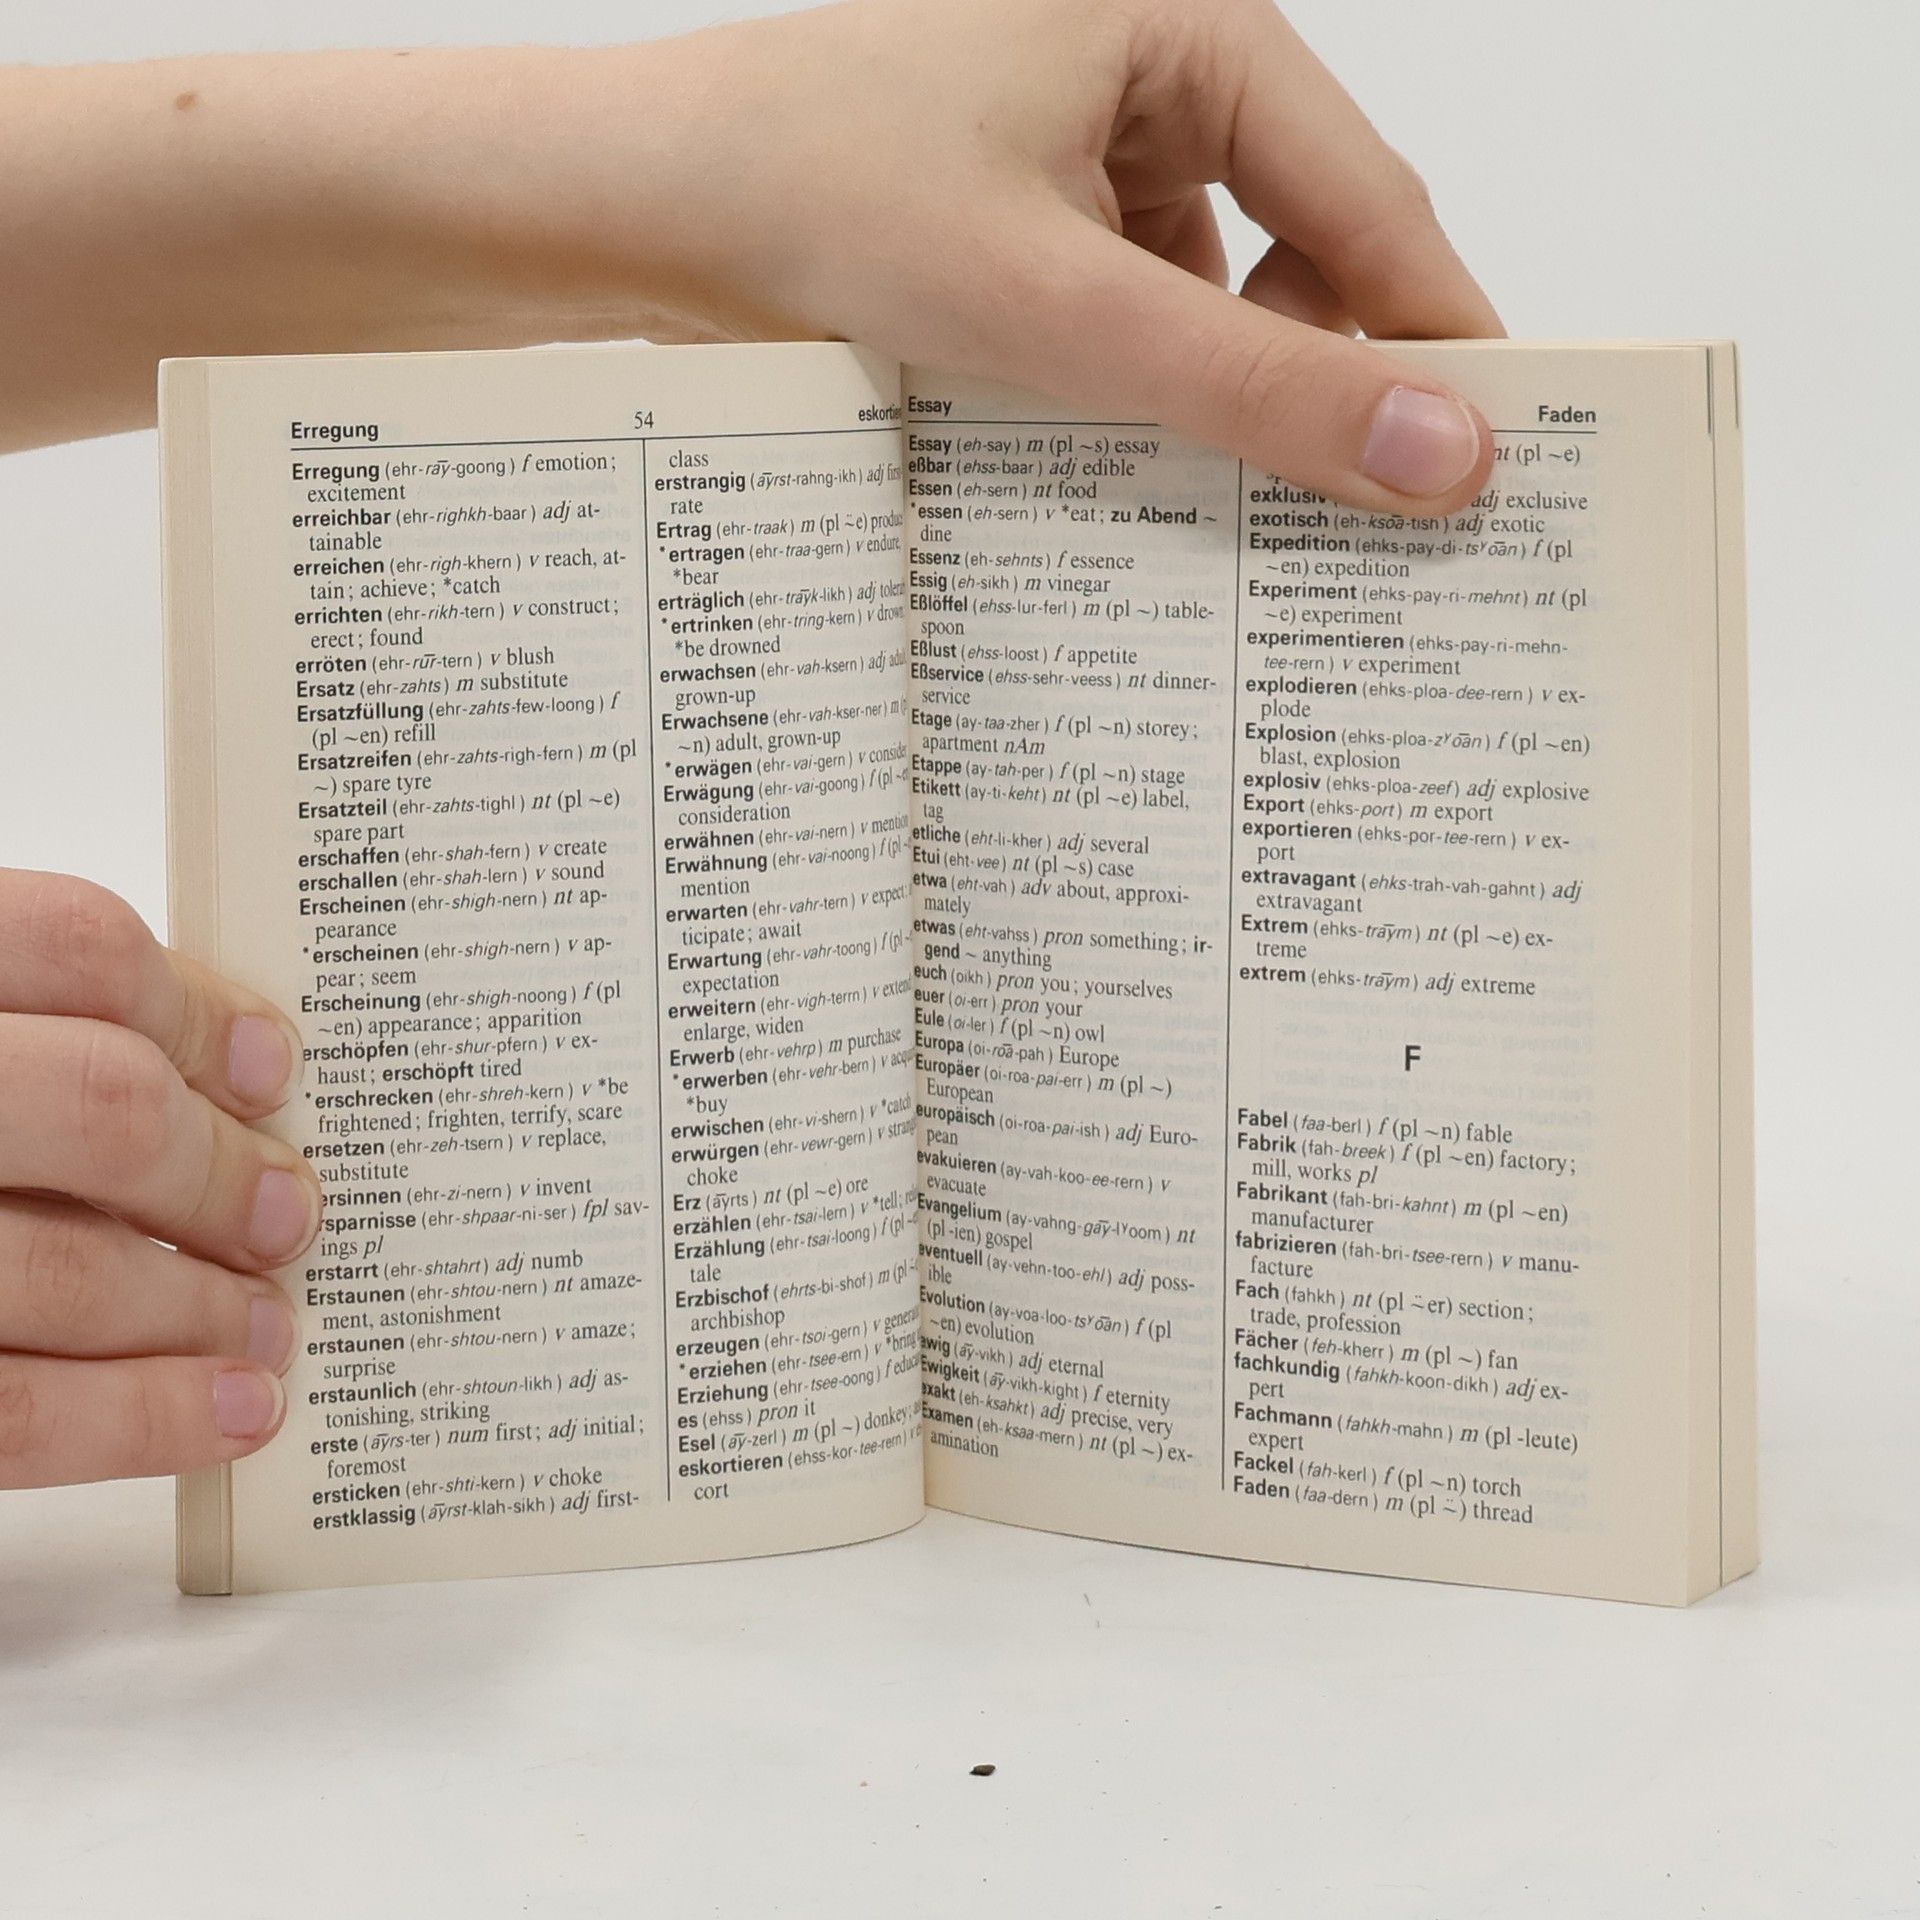 Erregung 54
Erregung (ehr-rāy-goong) f emotion;
excitement
erreichbar (ehr-righkh-baar) adj at-
tainable
erreichen (ehr-righ-khern) v reach, at-
tain; achieve; *catch
errichten (ehr-rikh-tern) v construct;
erect; found
erröten (ehr-rūr-tern) v blush
Ersatz (ehr-zahts) m substitute
Ersatzfüllung (ehr-zahts-few-loong) f
(pl ~en) refill
Ersatzreifen (ehr-zahts-righ-fern) m (pl
~) spare tyre
Ersatzteil (ehr-zahts-tighl) nt (pl ~e)
spare part
erschaffen (ehr-shah-fern) v create
erschallen (ehr-shah-lern) v sound
Erscheinen (ehr-shigh-nern) nt ap-
pearance
*erscheinen (ehr-shigh-nern) v ap-
pear; seem
Erscheinung (ehr-shigh-noong) f (pl
~en) appearance; apparition
erschöpfen (ehr-shur-pfern) v ex-
haust; erschöpft tired
*erschrecken (ehr-shreh-kern) v *be
frightened; frighten, terrify, scare
ersetzen (ehr-zeh-tsern) v replace,
substitute
ersinnen (ehr-zi-nern) v invent
(ehr-shpaar-ni-ser) fpl sav-
ings pl
erstarrt (ehr-shtahrt) adj numb
Erstaunen (ehr-shtou-nern) nt amaze-
ment, astonishment
erstaunen (ehr-shtou-nern) v amaze;
surprise
erstaunlich (ehr-shtoun-likh) adj as-
tonishing, striking
erste (āyrs-ter) num first; adj initial;
foremost
ersticken (ehr-shti-kern) v choke
erstklassig (āyrst-klah-sikh) adj first-
class
erstrangig (āyrst-rahng-ikh) adj
rate
Ertrag (ehr-traak) m (pl ⸚e)
*ertragen (ehr-traa-gern) v endure,
*bear
erträglich (ehr-trāyk-likh) adj
*ertrinken (ehr-tring-kern) v
*be drowned
erwachsen (ehr-vah-ksern) adj
grown-up
Erwachsene (ehr-vah-kser-ner) m
~n) adult, grown-up
*erwägen (ehr-vai-gern) v
Erwägung (ehr-vai-goong) f (pl
consideration
erwähnen (ehr-vai-nern) v mention
Erwähnung (ehr-vai-noong) f (pl
mention
erwarten (ehr-vahr-tern) v expect;
ticipate; await
Erwartung (ehr-vahr-toong) f (pl
expectation
erweitern (ehr-vigh-terrn) v
enlarge, widen
Erwerb (ehr-vehrp) m purchase
*erwerben (ehr-vehr-bern) v
*buy
erwischen (ehr-vi-shern) v *catch
erwürgen (ehr-vewr-gern) v
choke
Erz (āyrts) nt (pl ~e) ore
erzählen (ehr-tsai-lern) v *tell;
Erzählung (ehr-tsai-loong) f (pl
tale
Erzbischof (ehrts-bi-shof) m (pl
archbishop
erzeugen (ehr-tsoi-gern) v
*erziehen (ehr-tsee-ern) v
Erziehung (ehr-tsee-oong) f
es (ehss) pron it
Esel (āy-zerl) m (pl ~) donkey;
eskortieren (ehss-kor-tee-rern) v
cort
Essay
Essay (eh-say) m (pl ~s) essay
eßbar (ehss-baar) adj edible
Essen (eh-sern) nt food
*essen (eh-sern) v *eat; zu Abend ~
dine
Essenz (eh-sehnts) f essence
Essig (eh-sikh) m vinegar
Eßlöffel (ehss-lur-ferl) m (pl ~) table-
spoon
Eßlust (ehss-loost) f appetite
Eßservice (ehss-sehr-veess) nt dinner-
service
Etage (ay-taa-zher) f (pl ~n) storey;
apartment nAm
Etappe (ay-tah-per) f (pl ~n) stage
Etikett (ay-ti-keht) nt (pl ~e) label,
tag
etliche (eht-li-kher) adj several
Etui (eht-vee) nt (pl ~s) case
etwa (eht-vah) adv about, approxi-
mately
etwas (eht-vahss) pron something; ir-
gend ~ anything
euch (oikh) pron you; yourselves
euer (oi-err) pron your
Eule (oi-ler) f (pl ~n) owl
Europa (oi-rōā-pah) Europe
Europäer (oi-roa-pai-err) m (pl ~)
European
europäisch (oi-roa-pai-ish) adj Euro-
pean
evakuieren (ay-vah-koo-ee-rern) v
evacuate
Evangelium (ay-vahng-gāy-lʸoom) nt
(pl -ien) gospel
eventuell (ay-vehn-too-ehl) adj poss-
ible
Evolution (ay-voa-loo-tsʸōān) f (pl
~en) evolution
ewig (āy-vikh) adj eternal
Ewigkeit (āy-vikh-kight) f eternity
exakt (eh-ksahkt) adj precise, very
Examen (eh-ksaa-mern) nt (pl ~) ex-
amination
Faden
nt (pl ~e)
adj exclusive
exotisch (eh-ksōā-tish) adj exotic
Expedition (ehks-pay-di-tsʸōān) f (pl
~en) expedition
Experiment (ehks-pay-ri-mehnt) nt (pl
~e) experiment
experimentieren (ehks-pay-ri-mehn-
tee-rern) v experiment
explodieren (ehks-ploa-dee-rern) v ex-
plode
Explosion (ehks-ploa-zʸōān) f (pl ~en)
blast, explosion
explosiv (ehks-ploa-zeef) adj explosive
Export (ehks-port) m export
exportieren (ehks-por-tee-rern) v ex-
port
extravagant (ehks-trah-vah-gahnt) adj
extravagant
Extrem (ehks-trāym) nt (pl ~e) ex-
treme
extrem (ehks-trāym) adj extreme
F
Fabel (faa-berl) f (pl ~n) fable
Fabrik (fah-breek) f (pl ~en) factory;
mill, works pl
Fabrikant (fah-bri-kahnt) m (pl ~en)
manufacturer
fabrizieren (fah-bri-tsee-rern) v manu-
facture
Fach (fahkh) nt (pl ⸚er) section;
trade, profession
Fächer (feh-kherr) m (pl ~) fan
fachkundig (fahkh-koon-dikh) adj ex-
pert
Fachmann (fahkh-mahn) m (pl -leute)
expert
Fackel (fah-kerl) f (pl ~n) torch
Faden (faa-dern) m (pl ⸚) thread